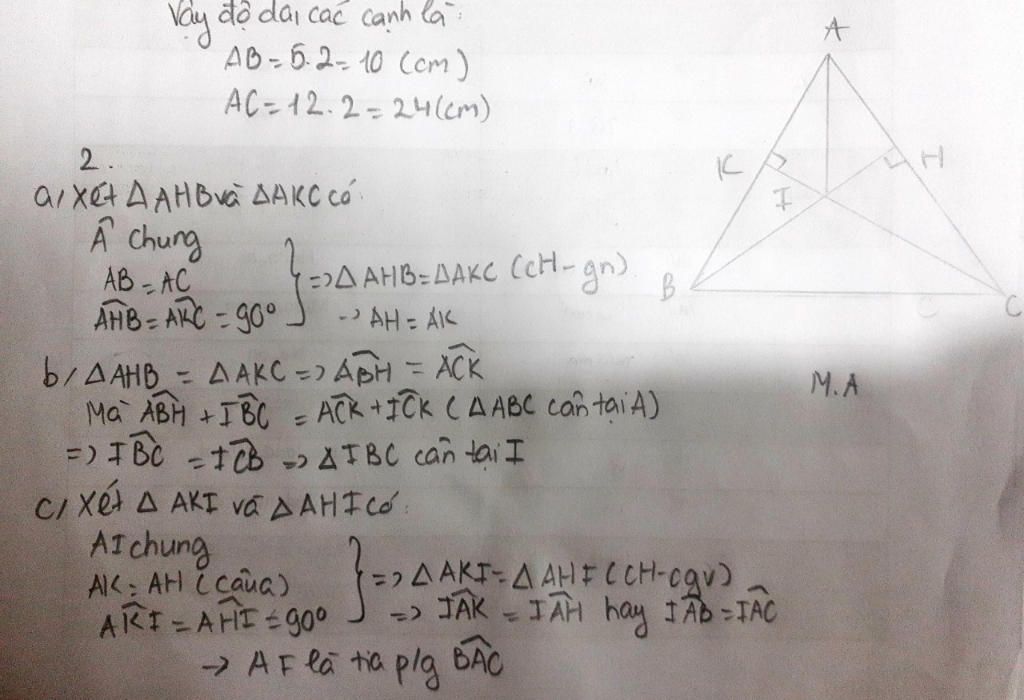 Vậy độ dài các cạnh là:
AB = 5.2 = 10 (cm)
AC = 12.2 = 24 (cm)
2.
a/ Xét △AHB và △AKC có:
Â chung
AB = AC
AHB̂ = AKĈ = 90°
=> △AHB = △AKC (cH - gn)
-> AH = AK
b/ △AHB = △AKC => ABĤ = ACK̂
Mà ABĤ + IBĈ = ACK̂ + ICK̂ (△ABC cân tại A)
=> IBĈ = ICB̂ => △IBC cân tại I
c/ Xét △AKI và △AHI có:
AI chung
AK = AH (câu a)
AKÎ = AHÎ = 90°
=> △AKI = △AHI (CH - cgv)
=> IAK̂ = IAĤ hay IAB̂ = IAĈ
-> AI là tia p/g BAĈ
A
K
H
I
B
C
C
M.A